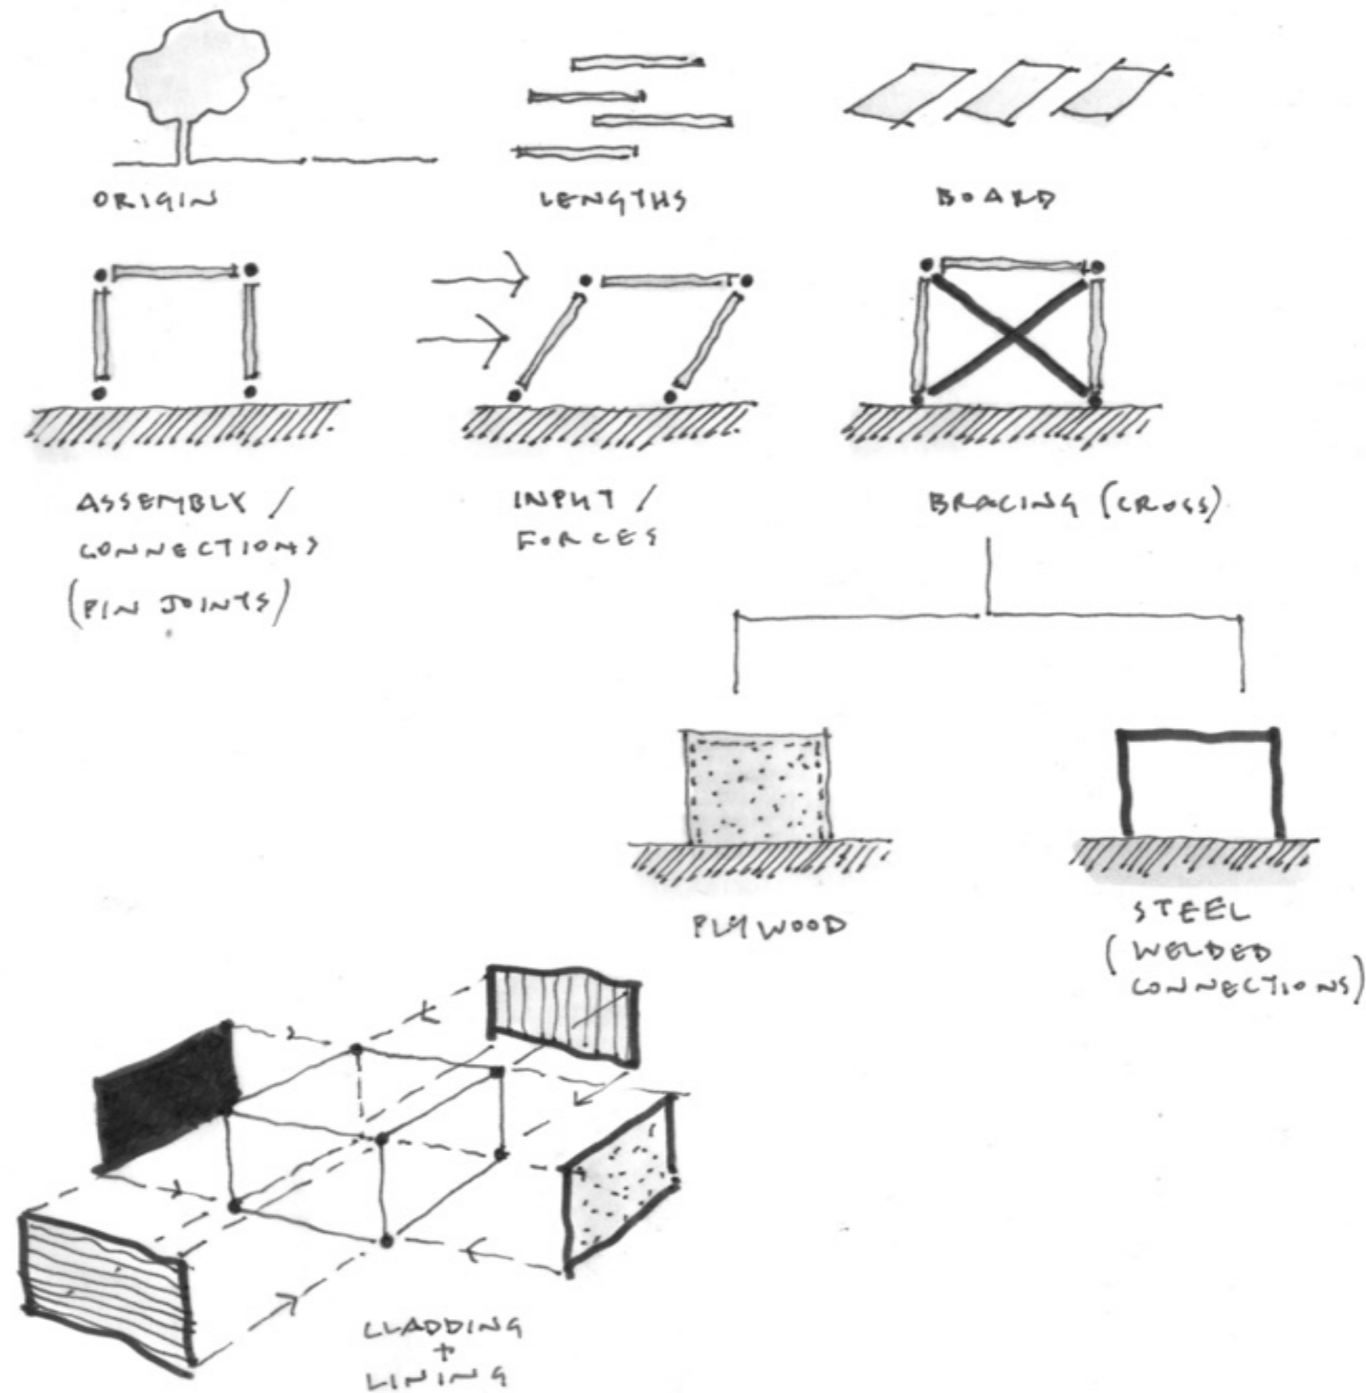 ORIGIN
LENGTHS
BOARD
ASSEMBLY /
CONNECTIONS
(PIN JOINTS)
INPUT /
FORCES
BRACING (CROSS)
PLYWOOD
STEEL
(WELDED
CONNECTIONS)
CLADDING
+
LINING